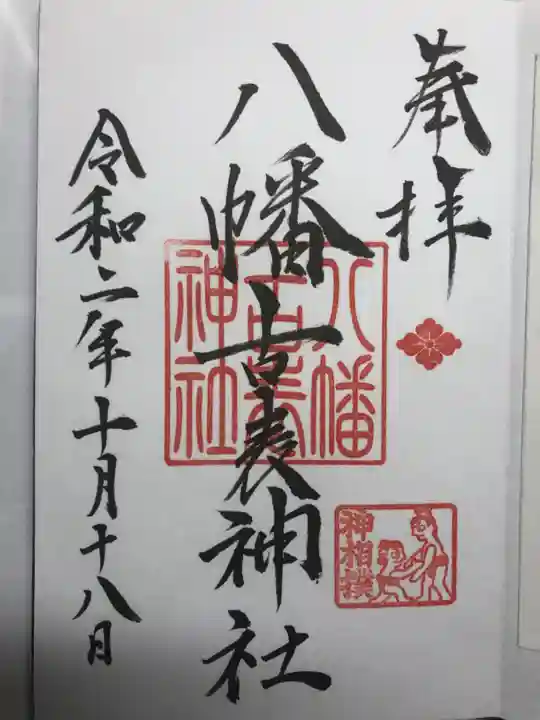 奉拝
八幡古表神社
八幡古表神社
神相撲
令和二年十月十八日